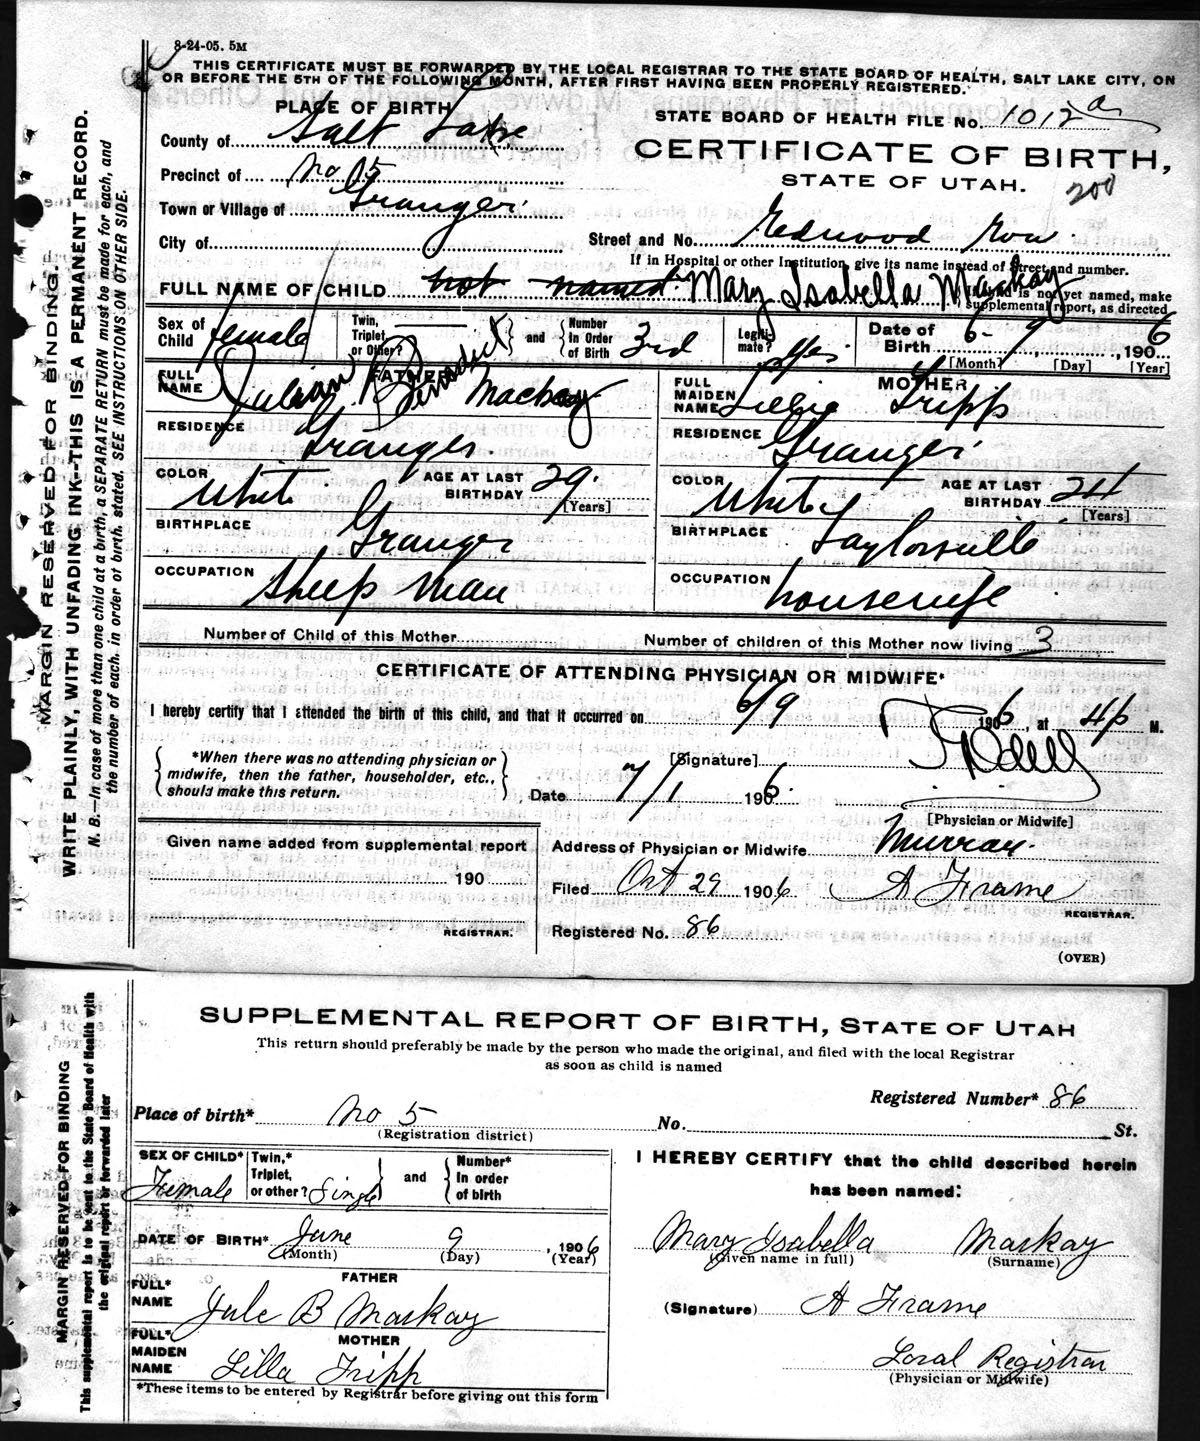 8-24-05. 5M
THIS CERTIFICATE MUST BE FORWARDED BY THE LOCAL REGISTRAR TO THE STATE BOARD OF HEALTH, SALT LAKE CITY, ON
OR BEFORE THE 5TH OF THE FOLLOWING MONTH, AFTER FIRST HAVING BEEN PROPERLY REGISTERED.
PLACE OF BIRTH
STATE BOARD OF HEALTH FILE NO. 1012 a
County of Salt Lake
CERTIFICATE OF BIRTH,
Precinct of No 5
STATE OF UTAH.
200
Town or Village of Granger
City of
Street and No. Redwood Row
If in Hospital or other Institution, give its name instead of Street and number.
FULL NAME OF CHILD not named Mary Isabella Mackay
is not yet named, make
supplemental report, as directed
Sex of Child female
Twin, Triplet, or Other?
and
Number In Order of Birth 3rd
Legiti-mate? Yes
Date of Birth 6 - 9, 1906
[Month] [Day] [Year]
FATHER
FULL NAME Julian Benedict Mackay
RESIDENCE Granger
COLOR White
AGE AT LAST BIRTHDAY 29
[Years]
BIRTHPLACE Granger
OCCUPATION Sheep Man
MOTHER
FULL MAIDEN NAME Lillie Tripp
RESIDENCE Granger
COLOR White
AGE AT LAST BIRTHDAY 24
[Years]
BIRTHPLACE Taylorsville
OCCUPATION housewife
Number of Child of this Mother
Number of children of this Mother now living 3
CERTIFICATE OF ATTENDING PHYSICIAN OR MIDWIFE*
I hereby certify that I attended the birth of this child, and that it occurred on 6/9 1906, at 4 P M.
*When there was no attending physician or
midwife, then the father, householder, etc.,
should make this return.
[Signature]
Date 7/1 1906
[Physician or Midwife]
Given name added from supplemental report
190
REGISTRAR.
Address of Physician or Midwife Murray
Filed Oct 29 1906 A Frame
REGISTRAR.
Registered No. 86
(OVER)
MARGIN RESERVED FOR BINDING.
WRITE PLAINLY, WITH UNFADING INK--THIS IS A PERMANENT RECORD.
N. B.--In case of more than one child at a birth, a SEPARATE RETURN must be made for each, and
the number of each, in order of birth, stated. SEE INSTRUCTIONS ON OTHER SIDE.
SUPPLEMENTAL REPORT OF BIRTH, STATE OF UTAH
This return should preferably be made by the person who made the original, and filed with the local Registrar
as soon as child is named
Registered Number* 86
Place of birth* No 5
(Registration district)
No. St.
SEX OF CHILD* Female
Twin,* Triplet, or other? Single
and
Number* In order of birth
DATE OF BIRTH* June 9, 1906
(Month) (Day) (Year)
FATHER
FULL* NAME Jule B Mackay
MOTHER
FULL* MAIDEN NAME Lilla Tripp
*These items to be entered by Registrar before giving out this form
I HEREBY CERTIFY that the child described herein
has been named:
Mary Isabella Mackay
(Given name in full) (Surname)
(Signature) A Frame
Local Registrar
(Physician or Midwife)
MARGIN RESERVED FOR BINDING
This supplemental report is to be sent to the State Board of Health with
the original report or forwarded later